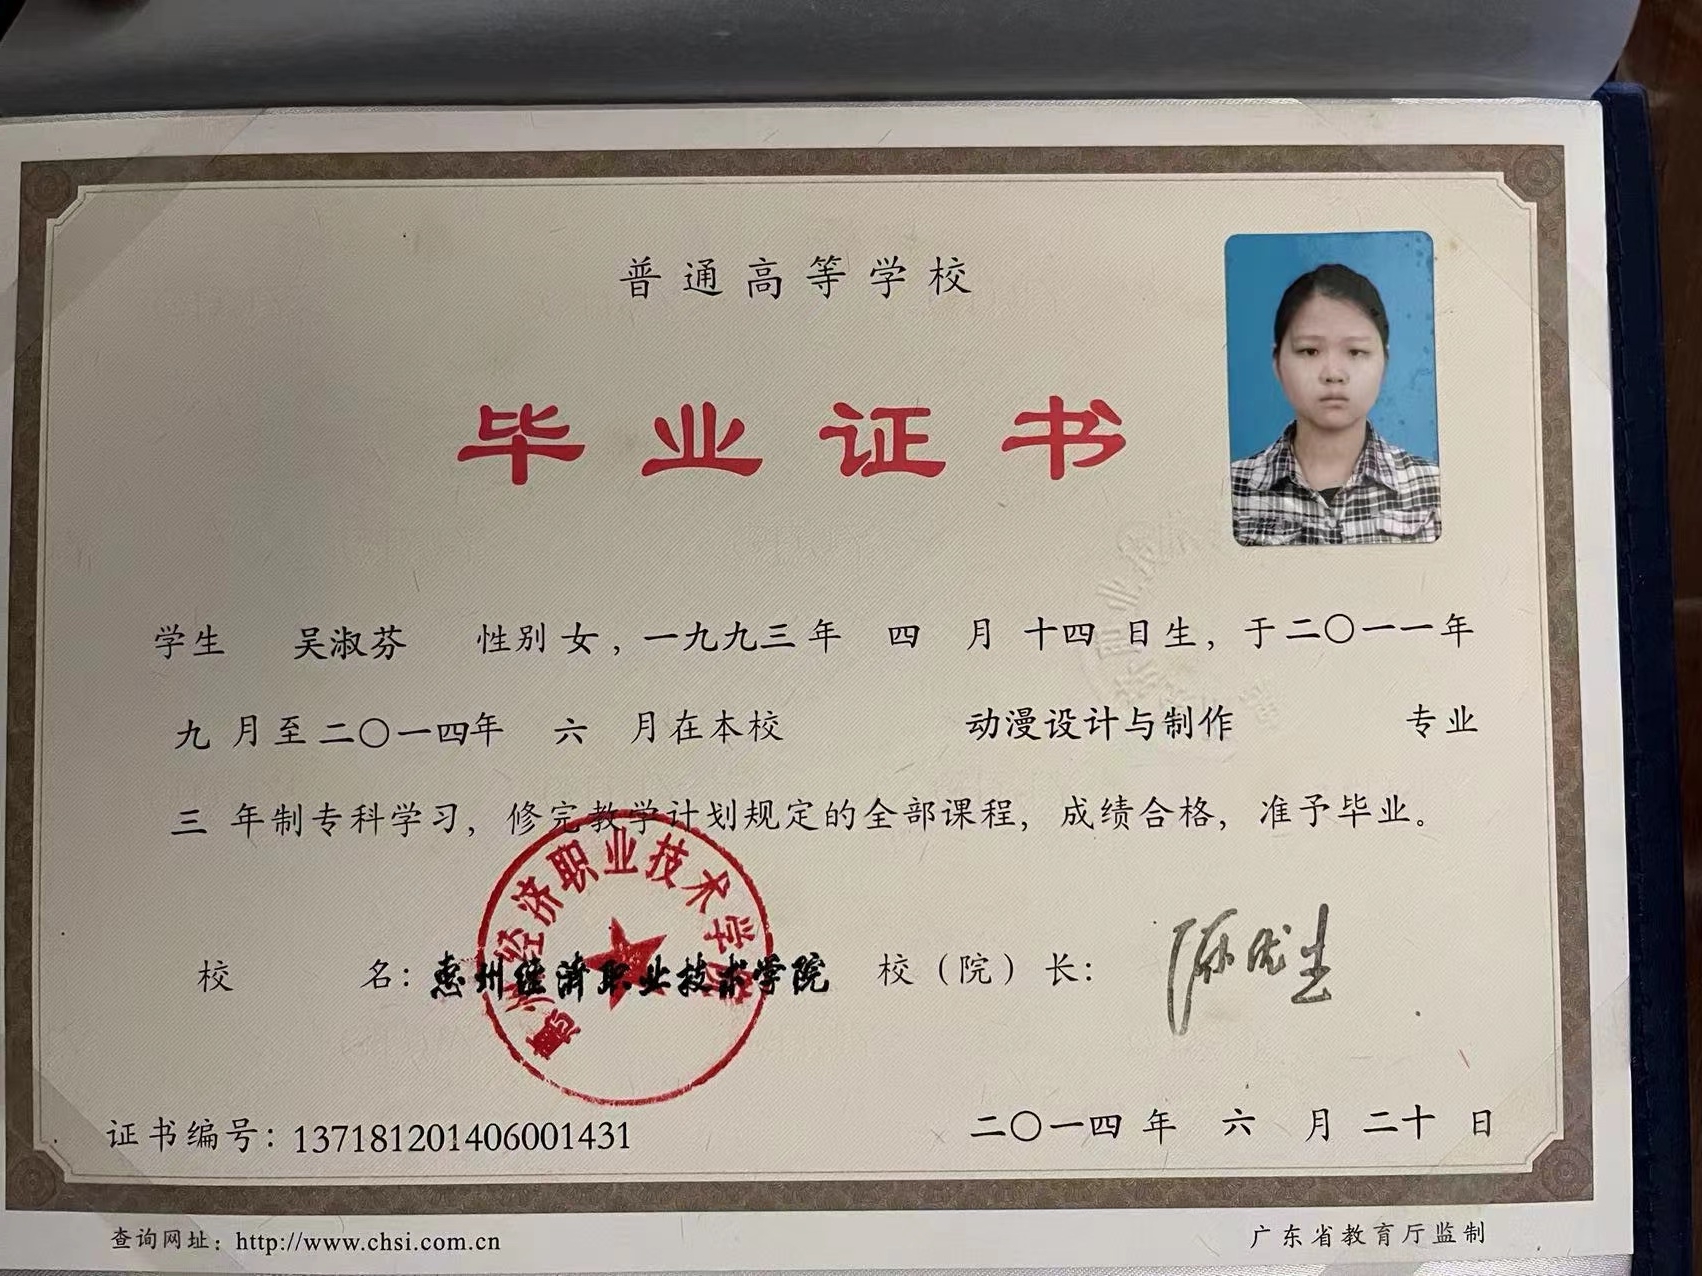 普通高等学校
毕业证书
学生 吴淑芬 性别 女，一九九三年 四 月 十四 日生，于二〇一一年
九 月至二〇一四年 六 月在本校 动漫设计与制作 专业
三 年制专科学习，修完教学计划规定的全部课程，成绩合格，准予毕业。
惠州经济职业技术学院
校 名：惠州经济职业技术学院 校（院）长：
证书编号：137181201406001431 二〇一四 年 六 月 二十 日
查询网址：http://www.chsi.com.cn 广东省教育厅监制